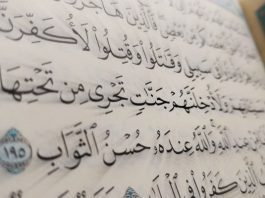 بَعْضٍ فَٱلَّذِينَ هَاجَرُوا۟
فِى سَبِيلِى وَقَٰتَلُوا۟ وَقُتِلُوا۟ لَأُكَفِّرَنَّ
وَلَأُدْخِلَنَّهُمْ جَنَّٰتٍ تَجْرِى مِن تَحْتِهَا
عِندِ ٱللَّهِ وَٱللَّهُ عِندَهُۥ حُسْنُ ٱلثَّوَابِ ١٩٥
ٱلَّذِينَ كَفَرُوا۟ فِى